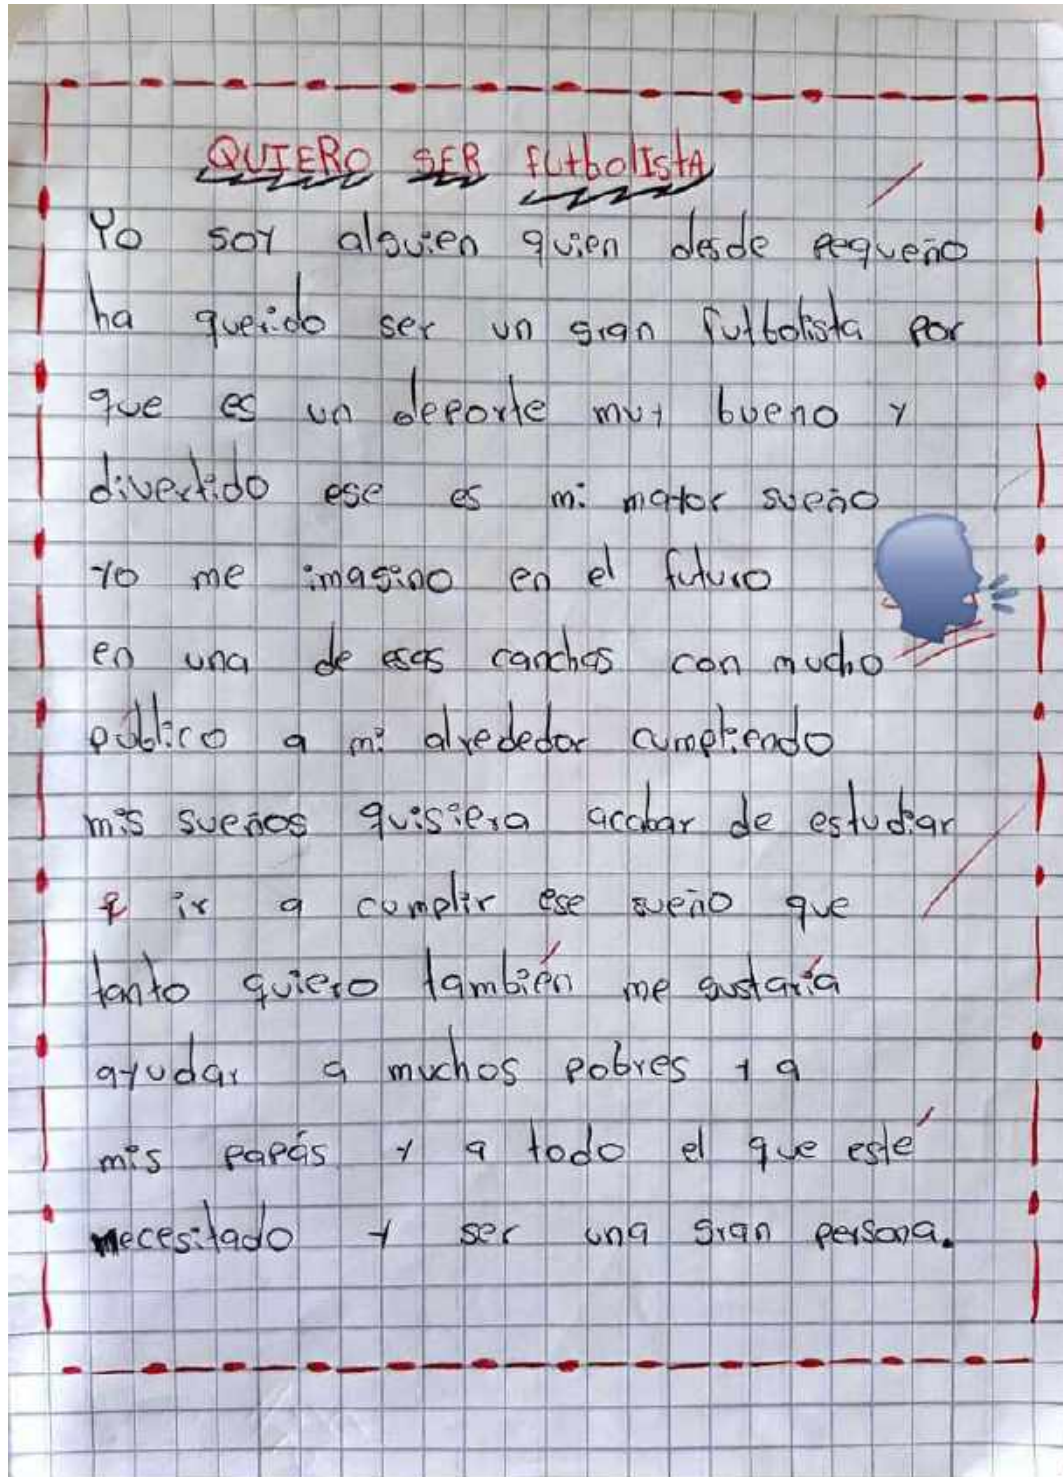 QUIERO SER futbolIstA
Yo soy alguien quien desde pequeño
ha querido ser un gran futbolista por
que es un deporte muy bueno y
divertido ese es mi mayor sueño
yo me imagino en el futuro
en una de esas canchas con mucho
público a mi alrededor cumpliendo
mis sueños quisiera acabar de estudiar
e ir a cumplir ese sueño que
tanto quiero también me gustaría
ayudar a muchos pobres y a
mis papás y a todo el que esté
necesitado y ser una gran persona.